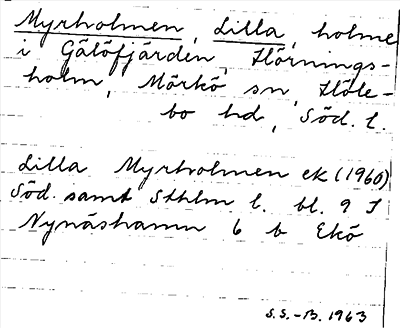 Myrholmen, Lilla, holme
i Gälöfjärden, Hörnings-
holm, Mörkö sn, Höle-
bo hd, Söd. l.
Lilla Myrholmen ek (1960)
Söd. samt Sthlm l. bl. 9 I
Nynäshamn 6 b Ekö
S.S.-B. 1963